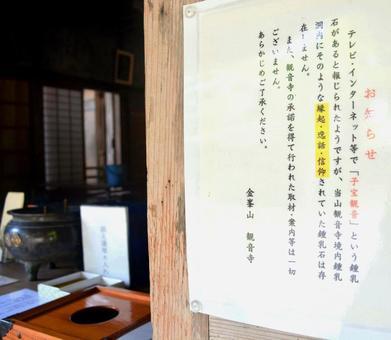 お知らせ
テレビ・インターネット等で「子宝観音」という鍾乳
石があると報じられたようですが、当山観音寺境内鍾乳
洞内にそのような縁起・逸話・信仰されていた鍾乳石は存
在しません。
また、観音寺の承諾を得て行われた取材・案内等は一切
ございません。
あらかじめご了承ください。
金峯山　観音寺